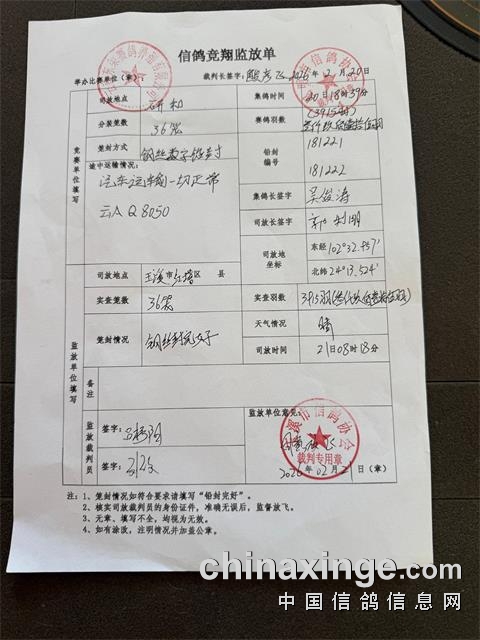 信鸽竞翔监放单
举办比赛单位(章) 裁判长签字: 2026年2月20日
竞赛单位填写
司放地点 研和 集鸽时间 20日18时39分
分装笼数 36笼 赛鸽羽数 (3915羽)
笼封方式 钢丝数字铅封 铅封编号 181221
181222
途中运输情况:
汽车运输一切正常
云A Q8050
集鸽长签字 吴俊涛
司放长签字 郭利明
司放地坐标 东经 102°32.957′
北纬 24°13.524′
监放单位填写
司放地点 玉溪市红塔区 县
实查笼数 36笼 实查羽数 3915羽
笼封情况 天气情况 晴
司放时间 21日08时18分
备注
监放裁判员 签字:
签字:
监放单位意见:
溪市信鸽协会
裁判专用章
2026年02月21日(章)
注: 1、笼封情况如符合要求请填写“铅封完好”。
2、核实司放裁判员的身份证件,准确无误后,监督放飞。
3、无章、填写不全,均视为无效。
4、如有涂泼,注明情况并加盖公章。
chinaxinge.com
中国信鸽信息网